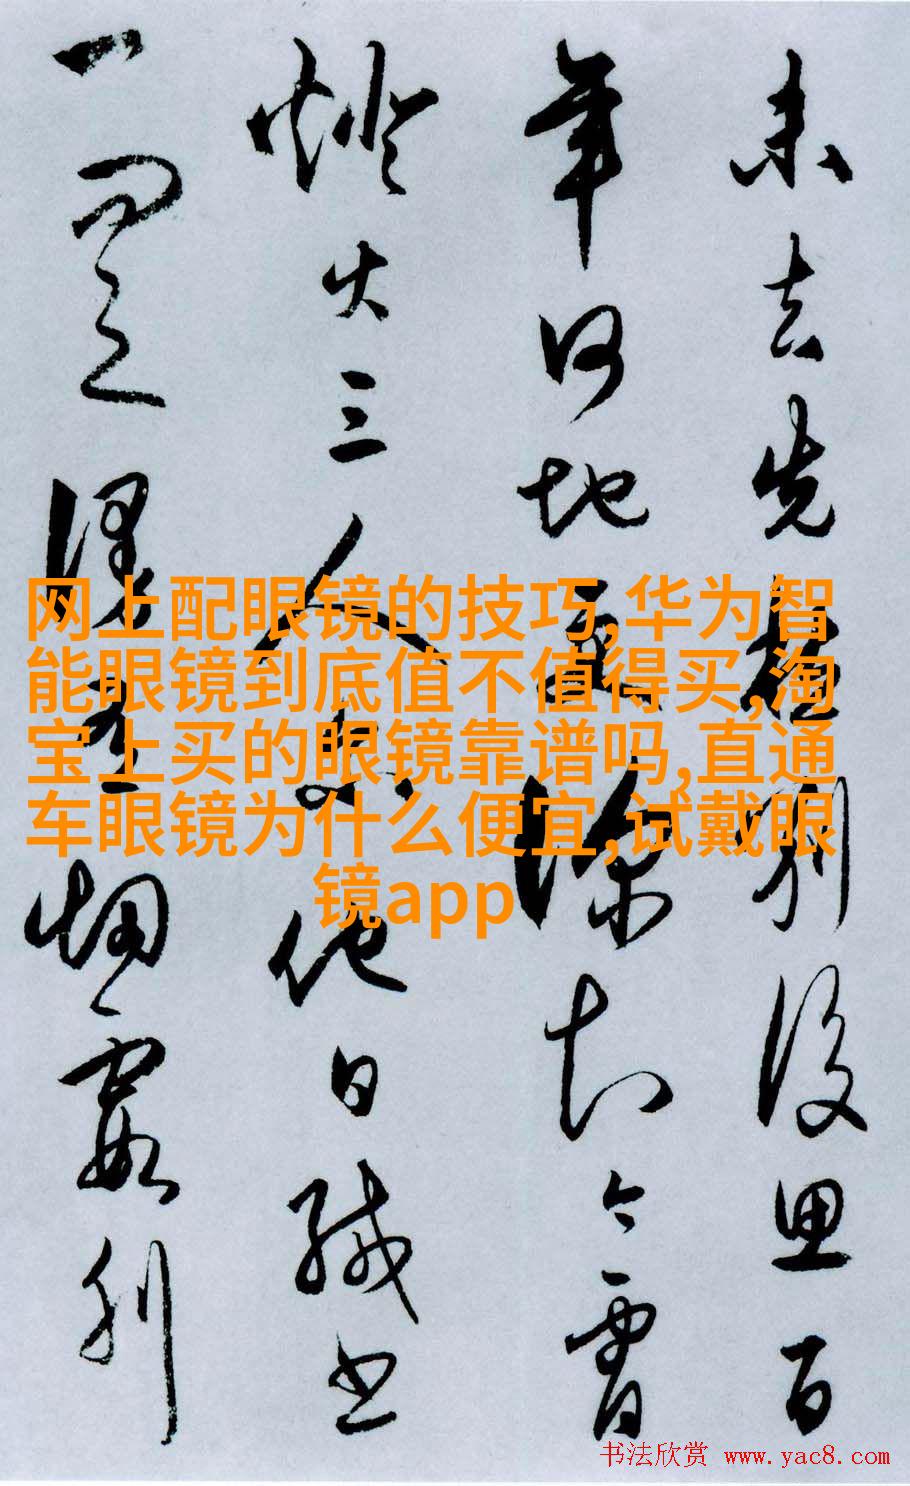 未去先别後思百
年何地更深知今宵
燈火三人尔他日缄书
一问之烟霞列
网上配眼镜的技巧,华为智
能眼镜到底值不值得买,淘
宝上买的眼镜靠谱吗,直通
车眼镜为什么便宜,试戴眼
镜app
书法欣赏 www.yac8.com